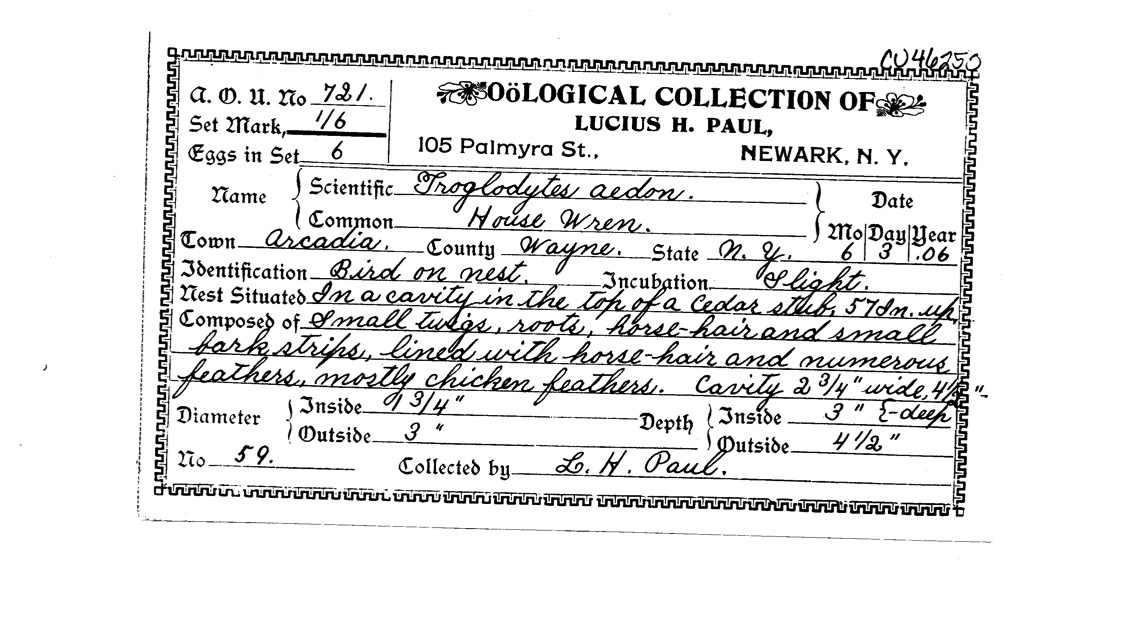 CU46250
A. O. U. No 721.
OöLOGICAL COLLECTION OF
Set Mark, 1/6
LUCIUS H. PAUL,
Eggs in Set 6
105 Palmyra St., NEWARK, N. Y.
Name Scientific Troglodytes aedon. Date
Common House Wren. Mo Day Year
Town Arcadia. County Wayne. State N. Y. 6 3 .06
Identification Bird on nest. Incubation Slight.
Nest Situated In a cavity in the top of a cedar stub, 57 In. up.
Composed of Small twigs, roots, horse-hair and small
bark strips, lined with horse-hair and numerous
feathers, mostly chicken feathers. Cavity 2 3/4" wide, 4 1/2"
deep
Diameter Inside 1 3/4" Depth Inside 3"
Outside 3" Outside 4 1/2"
No 59. Collected by L. H. Paul.